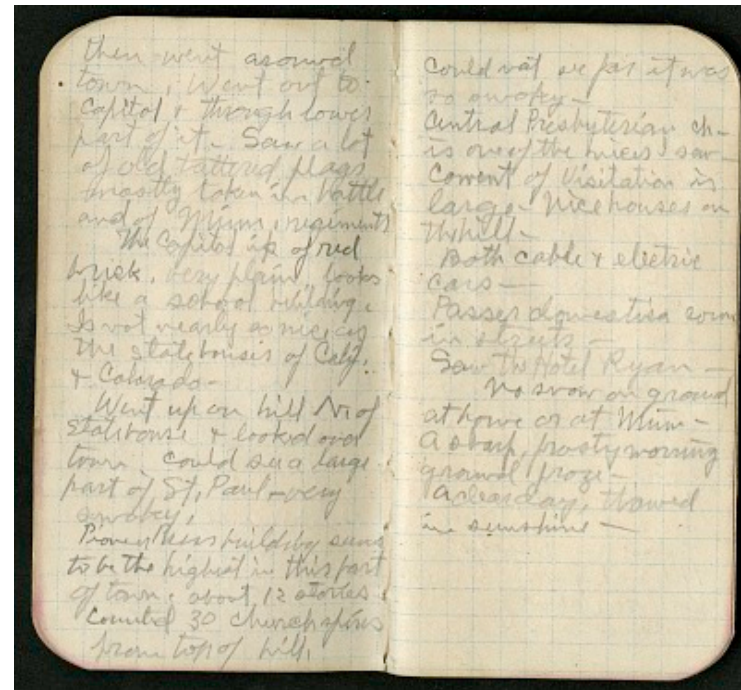 then went around
town. Went out to
Capitol & through lower
part of it. Saw a lot
of old tattered flags
mostly taken in battle
and of Minn. regiments
The Capitol is of red
brick, very plain, looks
like a school building.
Is not nearly as nice as
the statehouses of Calif.
& Colorado -
Went up on hill N. of
statehouse & looked over
town. could see a large
part of St. Paul - very
smokey.
Pioneer Press building seems
to be the highest in this part
of town. about 12 stories.
Counted 30 church spires
from top of hill.
Could not see far it was
so smoky -
Central Presbyterian ch -
is one of the nicest saw -
Convent of Visitation is
large - Nice houses on
the hill -
Both cable & electric
cars -
Passes down
in streets -
Saw the Hotel Ryan -
No snow on ground
at home or at Minn -
A sharp, frosty morning
ground froze -
A clear day, thawed
in sunshine -